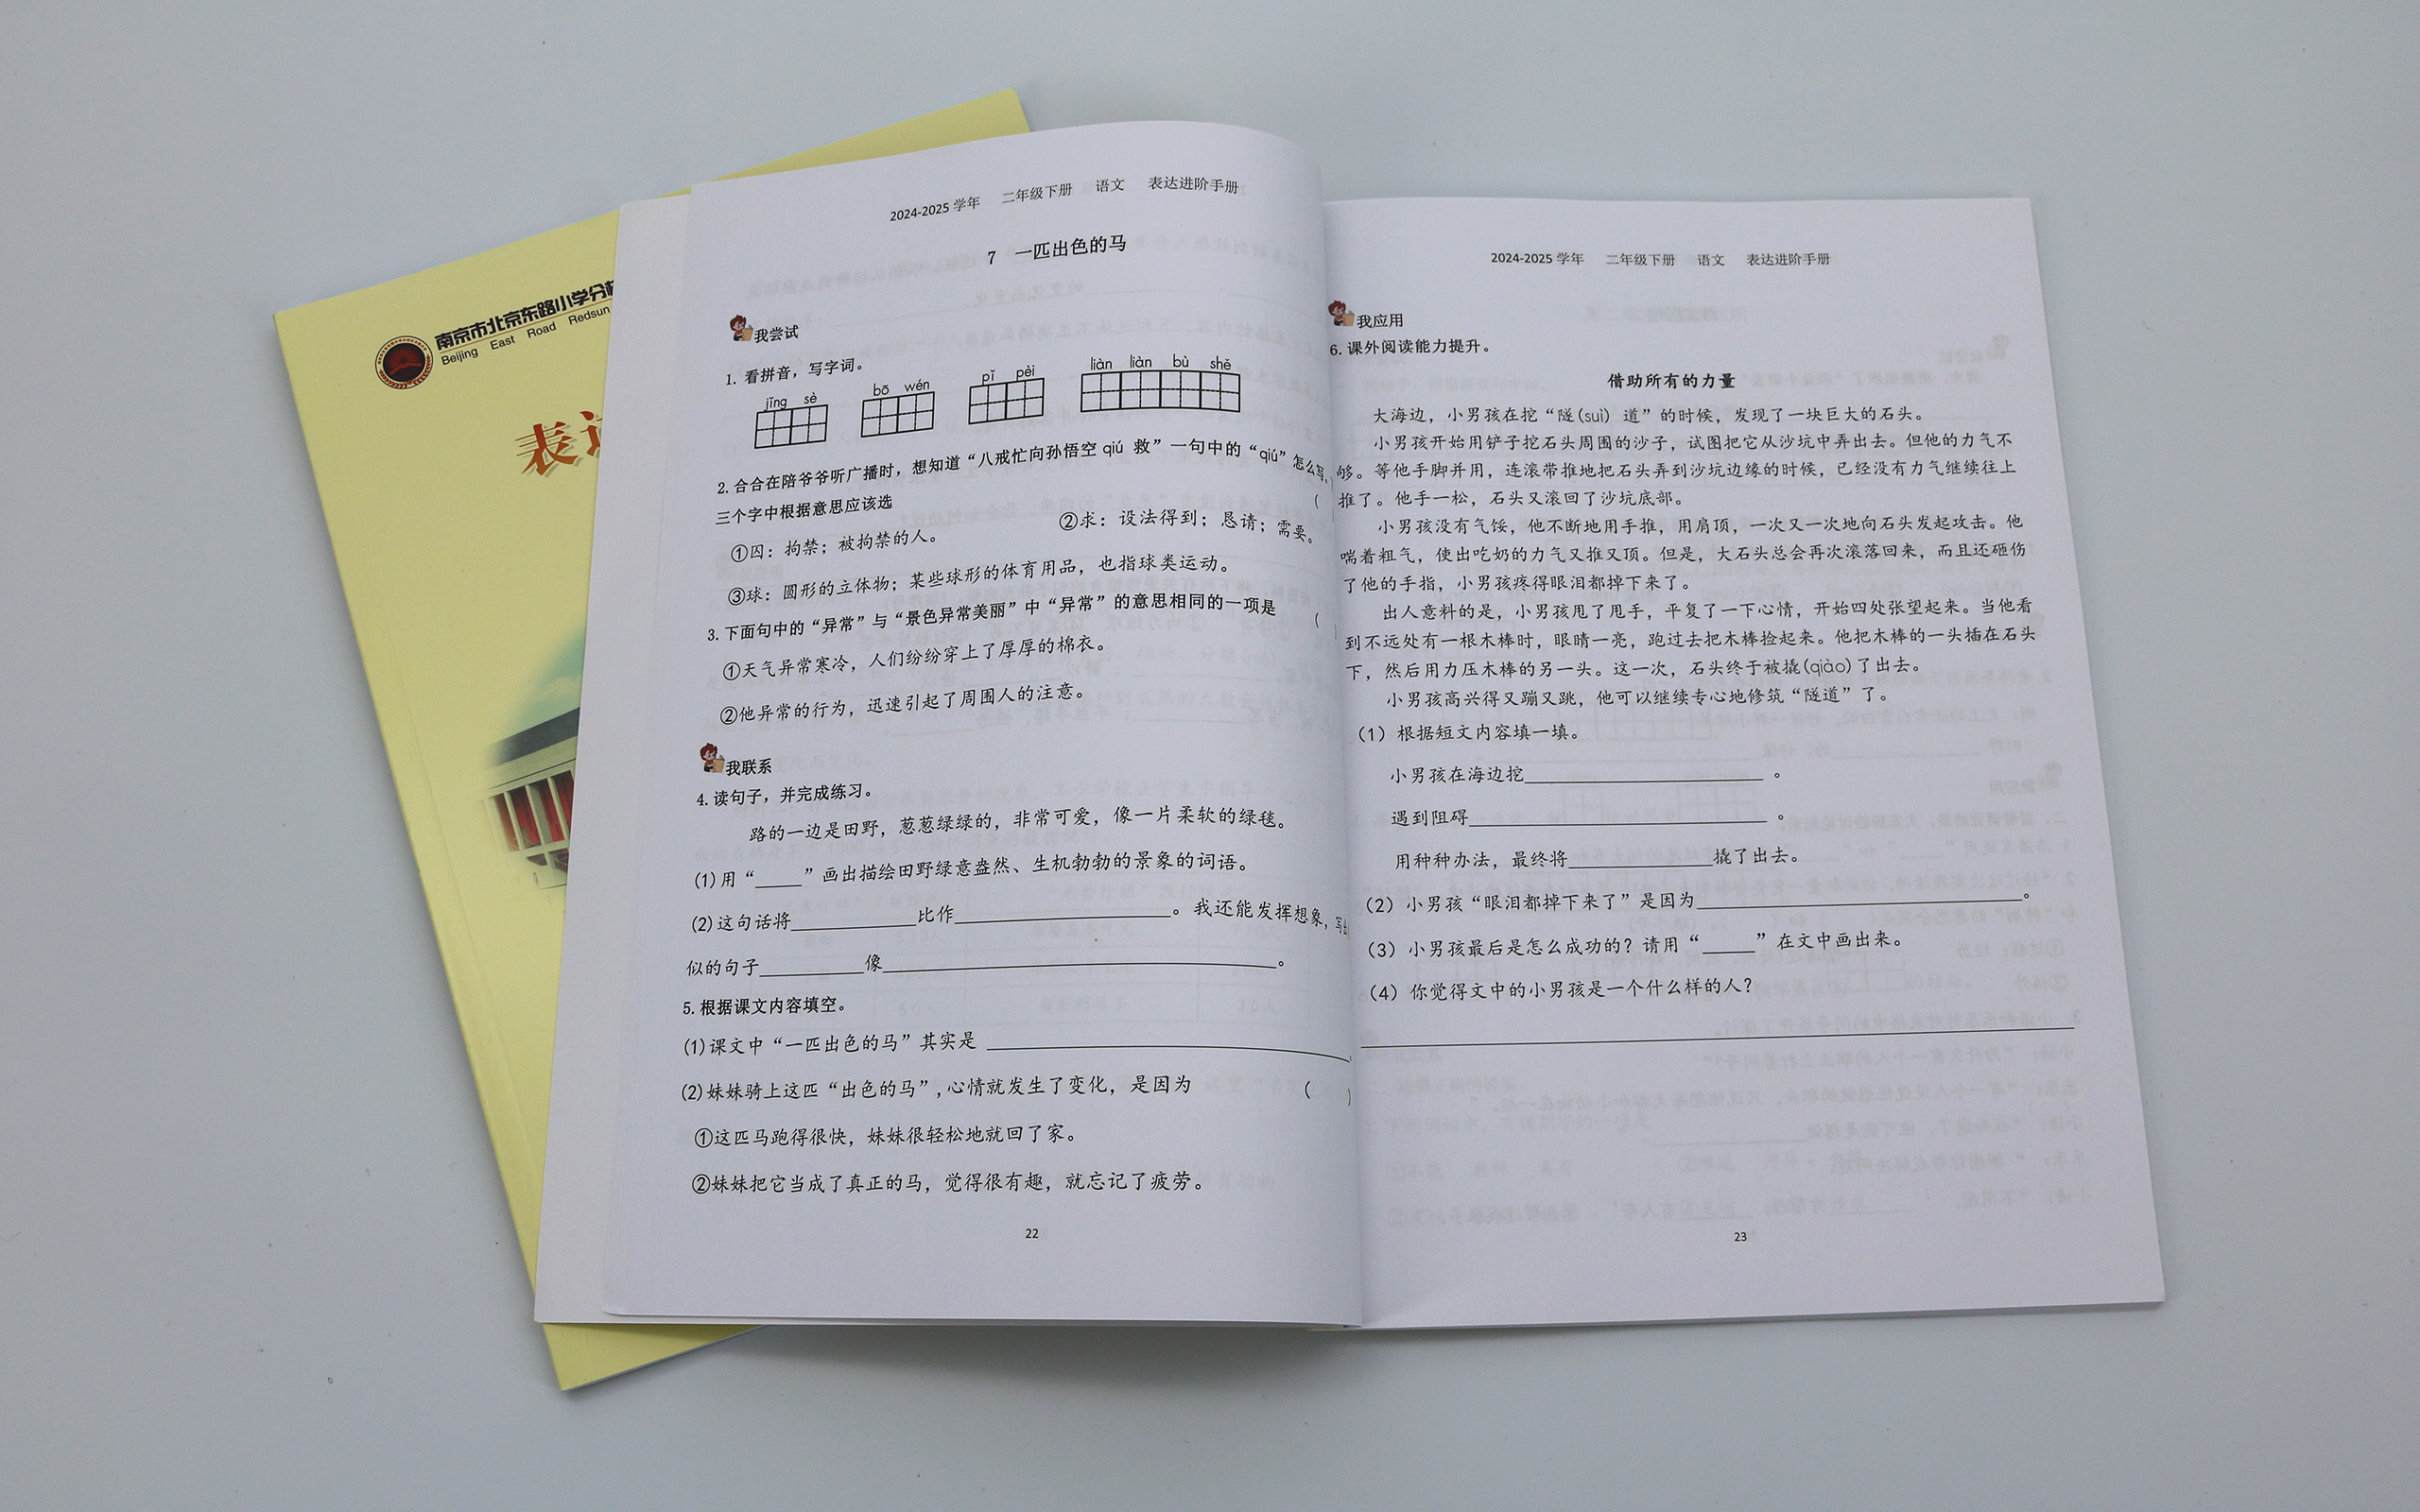 南京市北京东路小学分校
Beijing East Road Redsun
表达
2024-2025 学年 二年级下册 语文 表达进阶手册
7 一匹出色的马
我尝试
1. 看拼音，写字词。
jǐng sè bō wén pǐ pèi liàn liàn bù shě
2. 合合在陪爷爷听广播时，想知道“八戒忙向孙悟空 qiú 救”一句中的“qiú”怎么写，
三个字中根据意思应该选 (
①囚：拘禁；被拘禁的人。 ②求：设法得到；恳请；需要。
③球：圆形的立体物；某些球形的体育用品，也指球类运动。
3. 下面句中的“异常”与“景色异常美丽”中“异常”的意思相同的一项是 (
①天气异常寒冷，人们纷纷穿上了厚厚的棉衣。
②他异常的行为，迅速引起了周围人的注意。
我联系
4. 读句子，并完成练习。
路的一边是田野，葱葱绿绿的，非常可爱，像一片柔软的绿毯。
(1)用“____”画出描绘田野绿意盎然、生机勃勃的景象的词语。
(2)这句话将____比作____。我还能发挥想象，写出
似的句子____像____。
5. 根据课文内容填空。
(1)课文中“一匹出色的马”其实是____
(2)妹妹骑上这匹“出色的马”,心情就发生了变化，是因为 ( )
①这匹马跑得很快，妹妹很轻松地就回了家。
②妹妹把它当成了真正的马，觉得很有趣，就忘记了疲劳。
22
2024-2025 学年 二年级下册 语文 表达进阶手册
我应用
6. 课外阅读能力提升。
借助所有的力量
大海边，小男孩在挖“隧(suì) 道”的时候，发现了一块巨大的石头。
小男孩开始用铲子挖石头周围的沙子，试图把它从沙坑中弄出去。但他的力气不
够。等他手脚并用，连滚带推地把石头弄到沙坑边缘的时候，已经没有力气继续往上
推了。他手一松，石头又滚回了沙坑底部。
小男孩没有气馁，他不断地用手推，用肩顶，一次又一次地向石头发起攻击。他
喘着粗气，使出吃奶的力气又推又顶。但是，大石头总会再次滚落回来，而且还砸伤
了他的手指，小男孩疼得眼泪都掉下来了。
出人意料的是，小男孩甩了甩手，平复了一下心情，开始四处张望起来。当他看
到不远处有一根木棒时，眼睛一亮，跑过去把木棒捡起来。他把木棒的一头插在石头
下，然后用力压木棒的另一头。这一次，石头终于被撬(qiào)了出去。
小男孩高兴得又蹦又跳，他可以继续专心地修筑“隧道”了。
（1）根据短文内容填一填。
小男孩在海边挖____。
遇到阻碍____。
用种种办法，最终将____撬了出去。
（2）小男孩“眼泪都掉下来了”是因为____。
（3）小男孩最后是怎么成功的？请用“____”在文中画出来。
（4）你觉得文中的小男孩是一个什么样的人？
23